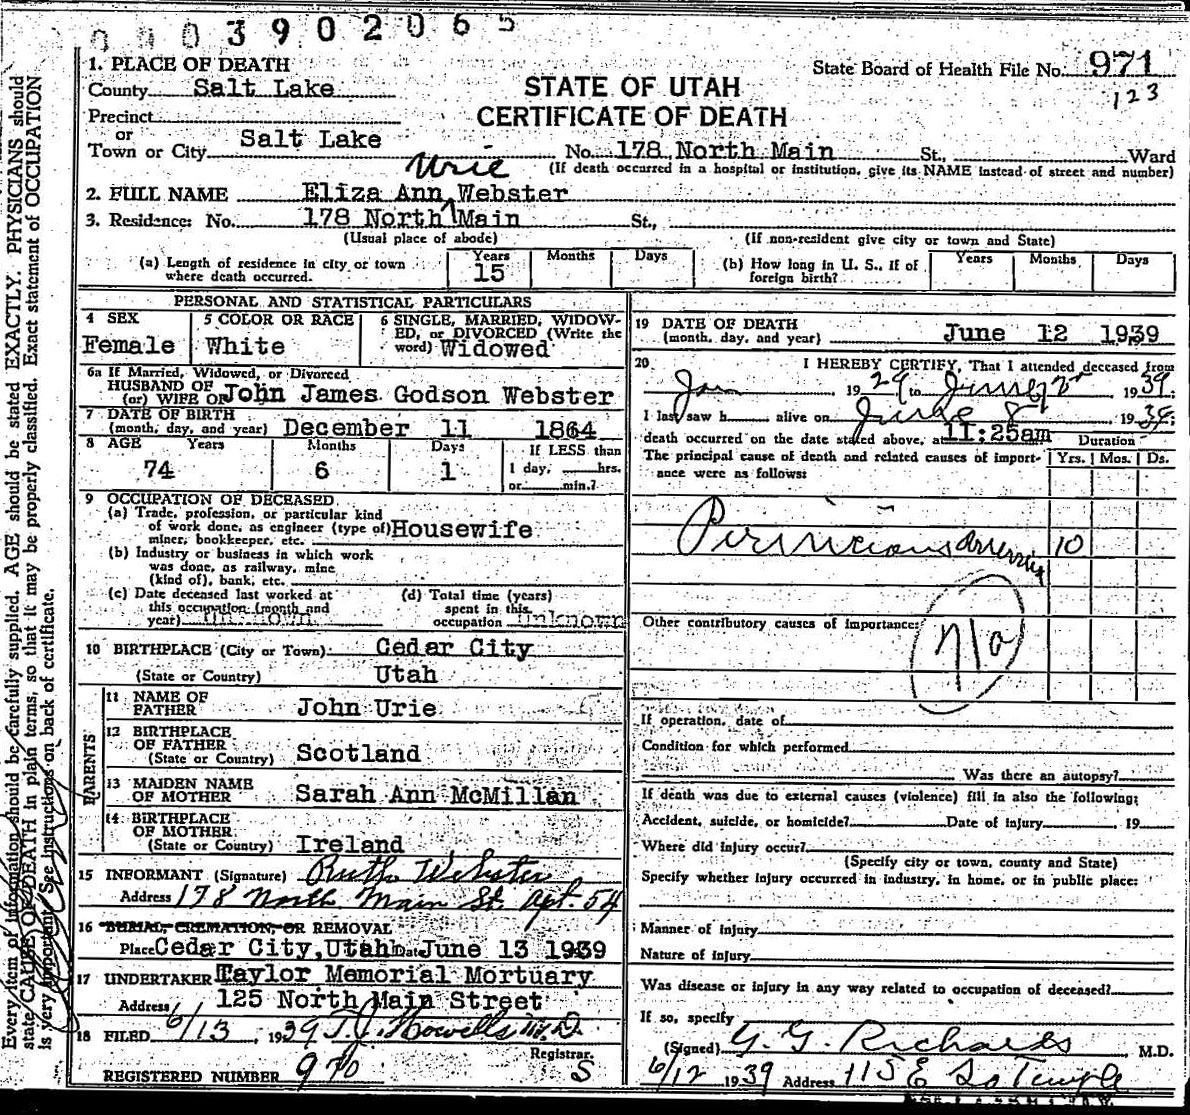 0003902065
1. PLACE OF DEATH
State Board of Health File No. 971
County Salt Lake
STATE OF UTAH
123
Precinct
CERTIFICATE OF DEATH
or
Town or City Salt Lake No. 178 North Main St., Ward
(If death occurred in a hospital or institution, give its NAME instead of street and number)
Urie
2. FULL NAME Eliza Ann Webster
3. Residence: No. 178 North Main St.,
(Usual place of abode) (If non-resident give city or town and State)
(a) Length of residence in city or town where death occurred. Years 15 Months Days
(b) How long in U. S., if of foreign birth? Years Months Days
PERSONAL AND STATISTICAL PARTICULARS
4 SEX Female
5 COLOR OR RACE White
6 SINGLE, MARRIED, WIDOWED, or DIVORCED (Write the word) Widowed
6a If Married, Widowed, or Divorced
HUSBAND OF
(or) WIFE OF John James Godson Webster
7 DATE OF BIRTH
(month, day, and year) December 11 1864
8 AGE Years 74 Months 6 Days 1 If LESS than
1 day, hrs.
or min.?
9 OCCUPATION OF DECEASED
(a) Trade, profession, or particular kind
of work done, as engineer (type of) Housewife
miner, bookkeeper, etc.
(b) Industry or business in which work
was done, as railway, mine
(kind of), bank, etc.
(c) Date deceased last worked at
this occupation (month and
year) unknown
(d) Total time (years)
spent in this
occupation unknown
10 BIRTHPLACE (City or Town) Cedar City
(State or Country) Utah
PARENTS
11 NAME OF
FATHER John Urie
12 BIRTHPLACE
OF FATHER
(State or Country) Scotland
13 MAIDEN NAME
OF MOTHER Sarah Ann McMillan
14 BIRTHPLACE
OF MOTHER
(State or Country) Ireland
15 INFORMANT (Signature) Ruth Webster
Address 178 North Main St. Apt. 54
16 BURIAL, CREMATION, OR REMOVAL
Place Cedar City, Utah Date June 13 1939
17 UNDERTAKER Taylor Memorial Mortuary
Address 125 North Main Street
18 FILED 6/13, 1939 T.J. Howells M.D.
Registrar.
REGISTERED NUMBER 970 S
19 DATE OF DEATH
(month, day, and year) June 12 1939
20 I HEREBY CERTIFY, That I attended deceased from
Jan 1929 to June 1939
I last saw h alive on June 8, 1939;
death occurred on the date stated above, at 11:25am Duration
The principal cause of death and related causes of import- Yrs. Mos. Ds.
ance were as follows:
Pernicious Anemia 10
Other contributory causes of importance:
71a
If operation, date of
Condition for which performed
Was there an autopsy?
If death was due to external causes (violence) fill in also the following;
Accident, suicide, or homicide? Date of injury , 19
Where did injury occur?
(Specify city or town, county and State)
Specify whether injury occurred in industry, in home, or in public place:
Manner of injury
Nature of injury
Was disease or injury in any way related to occupation of deceased?
If so, specify
(Signed) G. G. Richards M.D.
6/12 1939 Address 115 E So Temple
Every item of information should be carefully supplied. AGE should be stated EXACTLY. PHYSICIANS should
state CAUSE OF DEATH in plain terms, so that it may be properly classified. Exact statement of OCCUPATION
is very important. See instructions on back of certificate.